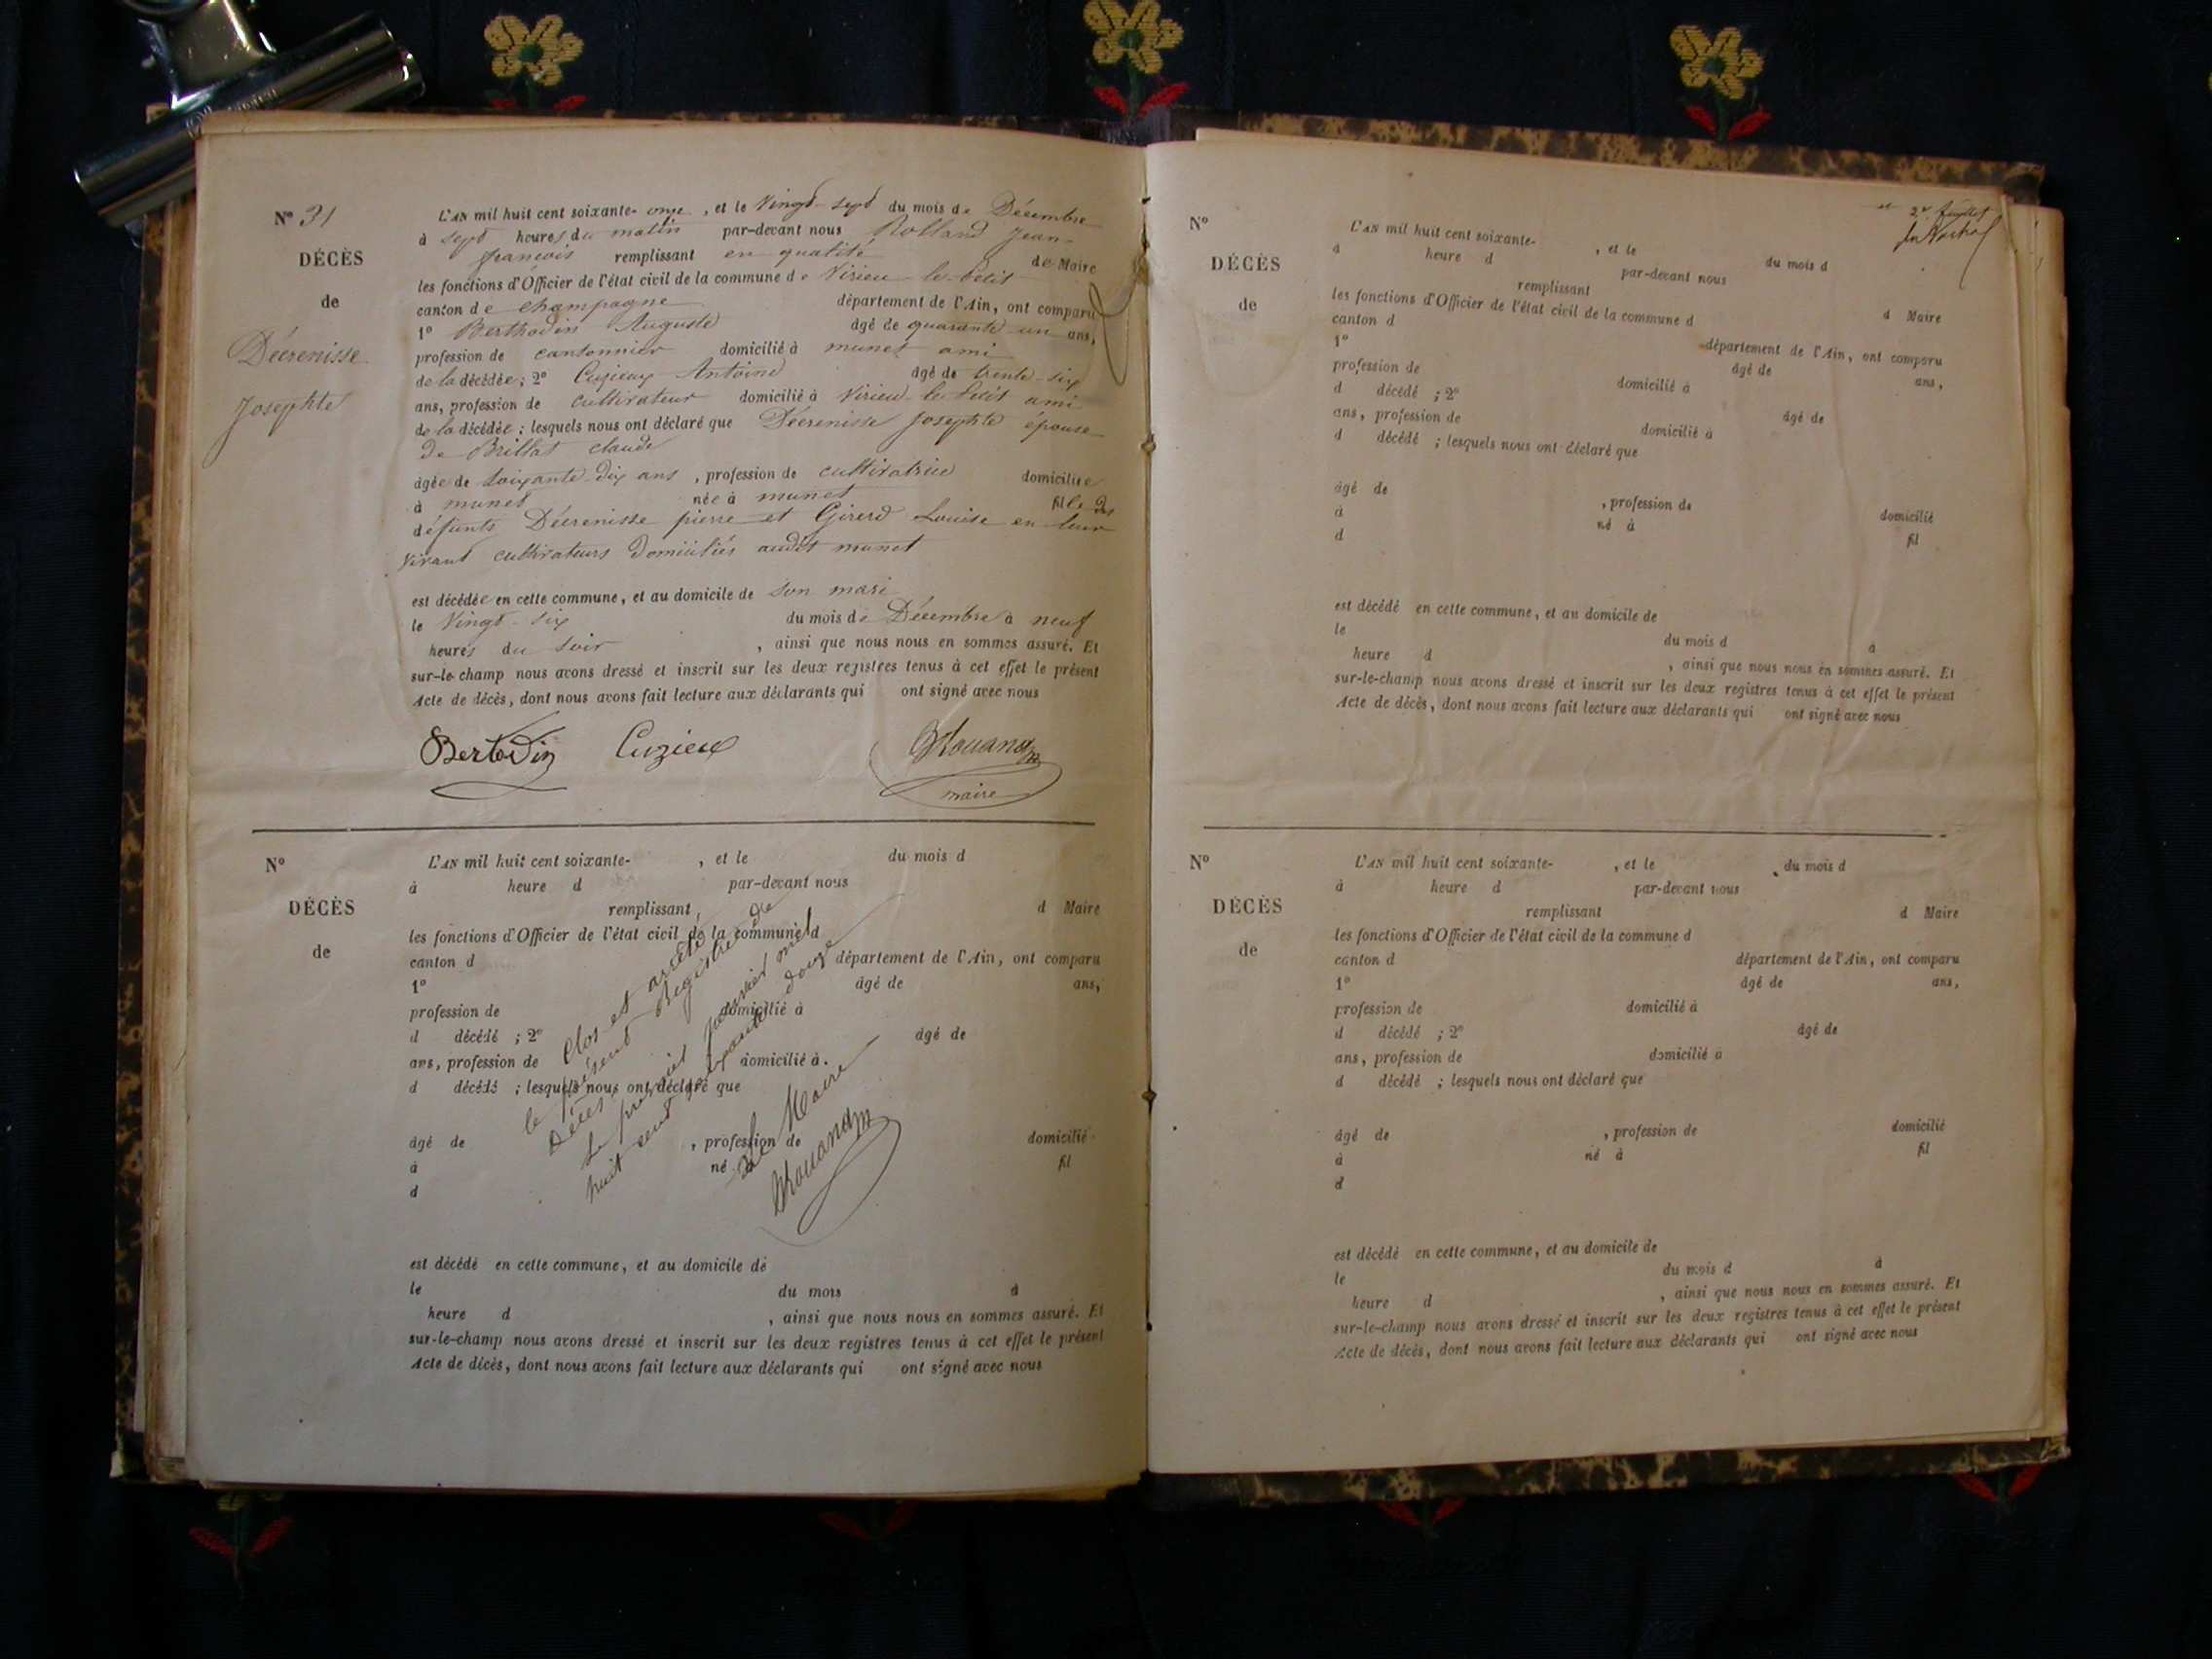 N° 31
DÉCÈS
de
Décrenisse
Josephte
L'AN mil huit cent soixante- onze , et le Vingt-sept du mois de Décembre
à sept heures du matin par-devant nous Rolland Jean-
françois remplissant en qualité de Maire
les fonctions d'Officier de l'état civil de la commune de Virieu le petit
canton de champagne département de l'Ain, ont comparu
1° Berthodin Auguste âgé de quarante un ans,
profession de cantonnier domicilié à munet ami
de la décédée; 2° Cuzieux Antoine âgé de trente-six
ans, profession de cultivateur domicilié à Virieu le petit ami
de la décédée; lesquels nous ont déclaré que Décrenisse Josephte épouse
de Brillat claude
âgée de soixante-dix ans , profession de cultivatrice domiciliée
à munet née à munet fille des
défunts Décrenisse pierre et Girerd Louise en leur
vivant cultivateurs domiciliés audit munet
est décédée en cette commune, et au domicile de son mari
le Vingt-six du mois de Décembre à neuf
heures du soir , ainsi que nous nous en sommes assuré. Et
sur-le-champ nous avons dressé et inscrit sur les deux registres tenus à cet effet le présent
Acte de décès, dont nous avons fait lecture aux déclarants qui ont signé avec nous
Bertodin Cuzieux
maire
N°
DÉCÈS
de
L'AN mil huit cent soixante- , et le du mois d
à heure d par-devant nous
remplissant d Maire
les fonctions d'Officier de l'état civil de la commune d
canton d département de l'Ain, ont comparu
1° âgé de ans,
profession de domicilié à
d décédé ; 2° âgé de
ans, profession de domicilié à
d décédé ; lesquels nous ont déclaré que
âgé de , profession de domicilié
à né à fil
d
Clos et arrêté
le présent Registre de
Décès
Le premier janvier mil
huit cent soixante douze
Le Maire
est décédé en cette commune, et au domicile de
le du mois à
heure d , ainsi que nous nous en sommes assuré. Et
sur-le-champ nous avons dressé et inscrit sur les deux registres tenus à cet effet le présent
Acte de décès, dont nous avons fait lecture aux déclarants qui ont signé avec nous
N°
DÉCÈS
de
L'AN mil huit cent soixante- , et le du mois d
à heure d par-devant nous
remplissant d Maire
les fonctions d'Officier de l'état civil de la commune d
canton d département de l'Ain, ont comparu
1° âgé de ans,
profession de domicilié à
d décédé ; 2° âgé de
ans, profession de domicilié à
d décédé ; lesquels nous ont déclaré que
âgé de , profession de domicilié
à né à fil
d
est décédé en cette commune, et au domicile de
le du mois d à
heure d , ainsi que nous nous en sommes assuré. Et
sur-le-champ nous avons dressé et inscrit sur les deux registres tenus à cet effet le présent
Acte de décès, dont nous avons fait lecture aux déclarants qui ont signé avec nous
N°
DÉCÈS
de
L'AN mil huit cent soixante- , et le du mois d
à heure d par-devant nous
remplissant d Maire
les fonctions d'Officier de l'état civil de la commune d
canton d département de l'Ain, ont comparu
1° âgé de ans,
profession de domicilié à
d décédé ; 2° âgé de
ans, profession de domicilié à
d décédé ; lesquels nous ont déclaré que
âgé de , profession de domicilié
à né à fil
d
est décédé en cette commune, et au domicile de
le du mois d à
heure d , ainsi que nous nous en sommes assuré. Et
sur-le-champ nous avons dressé et inscrit sur les deux registres tenus à cet effet le présent
Acte de décès, dont nous avons fait lecture aux déclarants qui ont signé avec nous